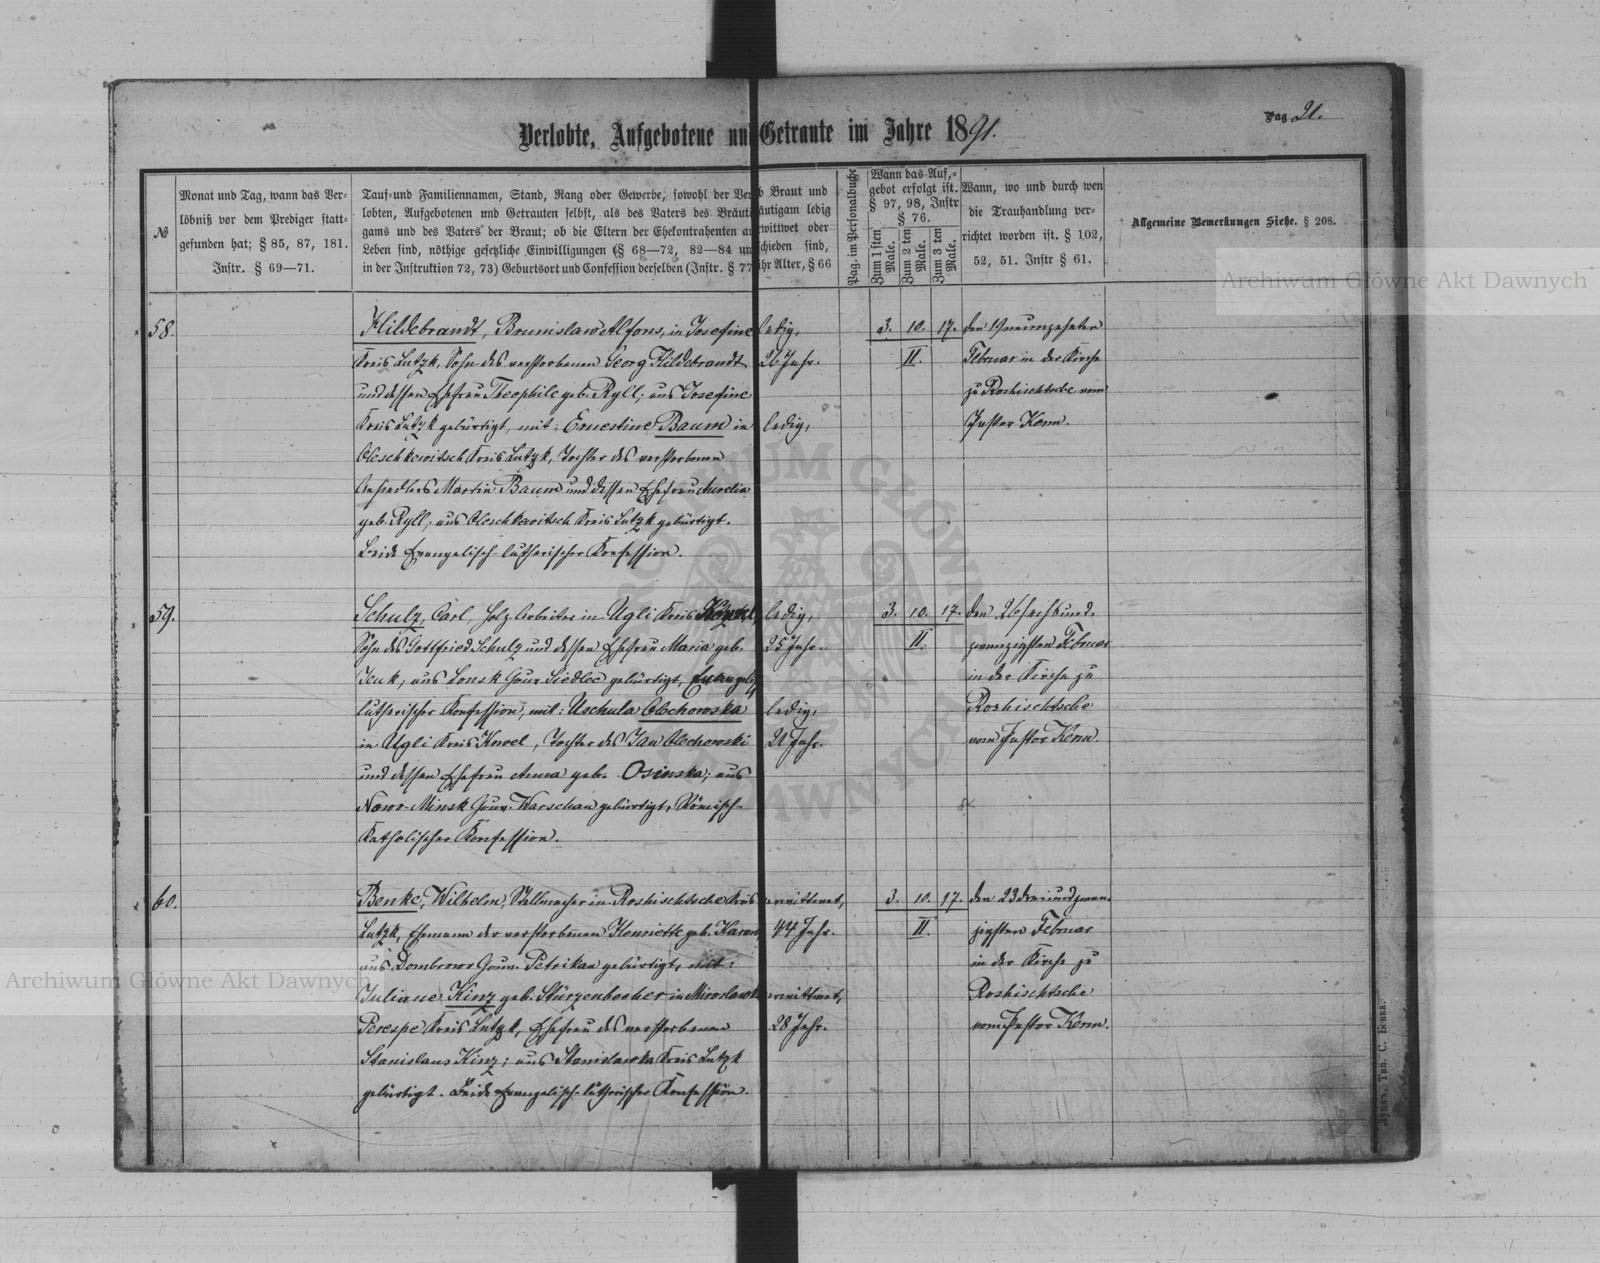 Pag. 21.
Verlobte, Aufgebotene un Getraute im Jahre 1891.
№
Monat und Tag, wann das Ver-
löbniß vor dem Prediger statt-
gefunden hat; § 85, 87, 181.
Instr. § 69—71.
Tauf-und Familiennamen, Stand, Rang oder Gewerbe, sowohl der Ver
lobten, Aufgebotenen und Getrauten selbst, als des Vaters des Bräuti
gams und des Vaters der Braut; ob die Eltern der Ehekontrahenten a
Leben sind, nöthige gesetzliche Einwilligungen (§ 68—72, 82—84 un
in der Instruktion 72, 73) Geburtsort und Confession derselben (Instr. § 77
b Braut und
äutigam ledig
wittwet oder
schieden sind,
ihr Alter, § 66
Pag. im Personalbuche
Wann das Auf-
gebot erfolgt ist.
§ 97, 98, Instr
§ 76.
Zum 1 sten Male.
Zum 2 ten Male.
Zum 3 ten Male.
Wann, wo und durch wen
die Trauhandlung ver-
richtet worden ist. § 102,
52, 51. Instr § 61.
Allgemeine Bemerkungen Siehe. § 208.
58.
Hildebrandt, Bronislaw Alfons, in Josefine
Kreis Lutzk, Sohn des verstorbenen Georg Hildebrandt
und dessen Ehefrau Theophile geb. Ryll; aus Josefine
Kreis Lutzk gebürtigt, mit: Ernestine Baum in
Oleschkewitsch Kreis Lutzk, Tochter des verstorbenen
Ansiedlers Martin Baum und dessen Ehefrau Aurelia
geb. Ryll; aus Oleschkewitsch Kreis Lutzk gebürtigt.
Beide Evangelisch-lutherischer Konfession.
ledig,
26 Jahr.
ledig,
3. 10. 17.
II.
den 19 neunzehnten
Februar in der Kirche
zu Roshischtsche vom
Pastor Kerm.
59.
Schulz, Carl, Holz Arbeiter in Ugli Kreis
Sohn des Gottfried Schulz und dessen Ehefrau Maria geb.
Jeuk, aus Lonsk Gouv. Siedlec gebürtigt, Evangelisch
lutherischer Konfession, mit: Uschula Olechowska
in Ugli Kreis Kowel, Tochter des Jan Olechowski
und dessen Ehefrau Anna geb. Osinska; aus
Nowo-Minsk Gouv. Warschau gebürtigt, Römisch-
Katholischer Konfession.
ledig,
25 Jahr.
ledig,
21 Jahr.
3. 10. 17.
II.
den 26 sechsund-
zwanzigsten Februar
in der Kirche zu
Roshischtsche
vom Pastor Kerm.
60.
Benke, Wilhelm, Stellmacher in Roshischtsche Kreis
Lutzk, Ehemann der verstorbenen Henriette geb.
aus Dombrowo Gouv. Petrikau gebürtigt, mit:
Juliane Kinz geb. Stürzenbecher in
Perespe Kreis Lutzk, Ehefrau des verstorbenen
Stanislaus Kinz; aus Stanislawka Kreis Lutzk
gebürtigt. Beide Evangelisch-lutherischer Konfession.
verwittwet,
44 Jahr.
verwittwet,
28 Jahr.
3. 10. 17.
II.
den 23 dreiundzwan-
zigsten Februar
in der Kirche zu
Roshischtsche
vom Pastor Kerm.
Archiwum Główne Akt Dawnych
Archiwum Główne Akt Dawnych